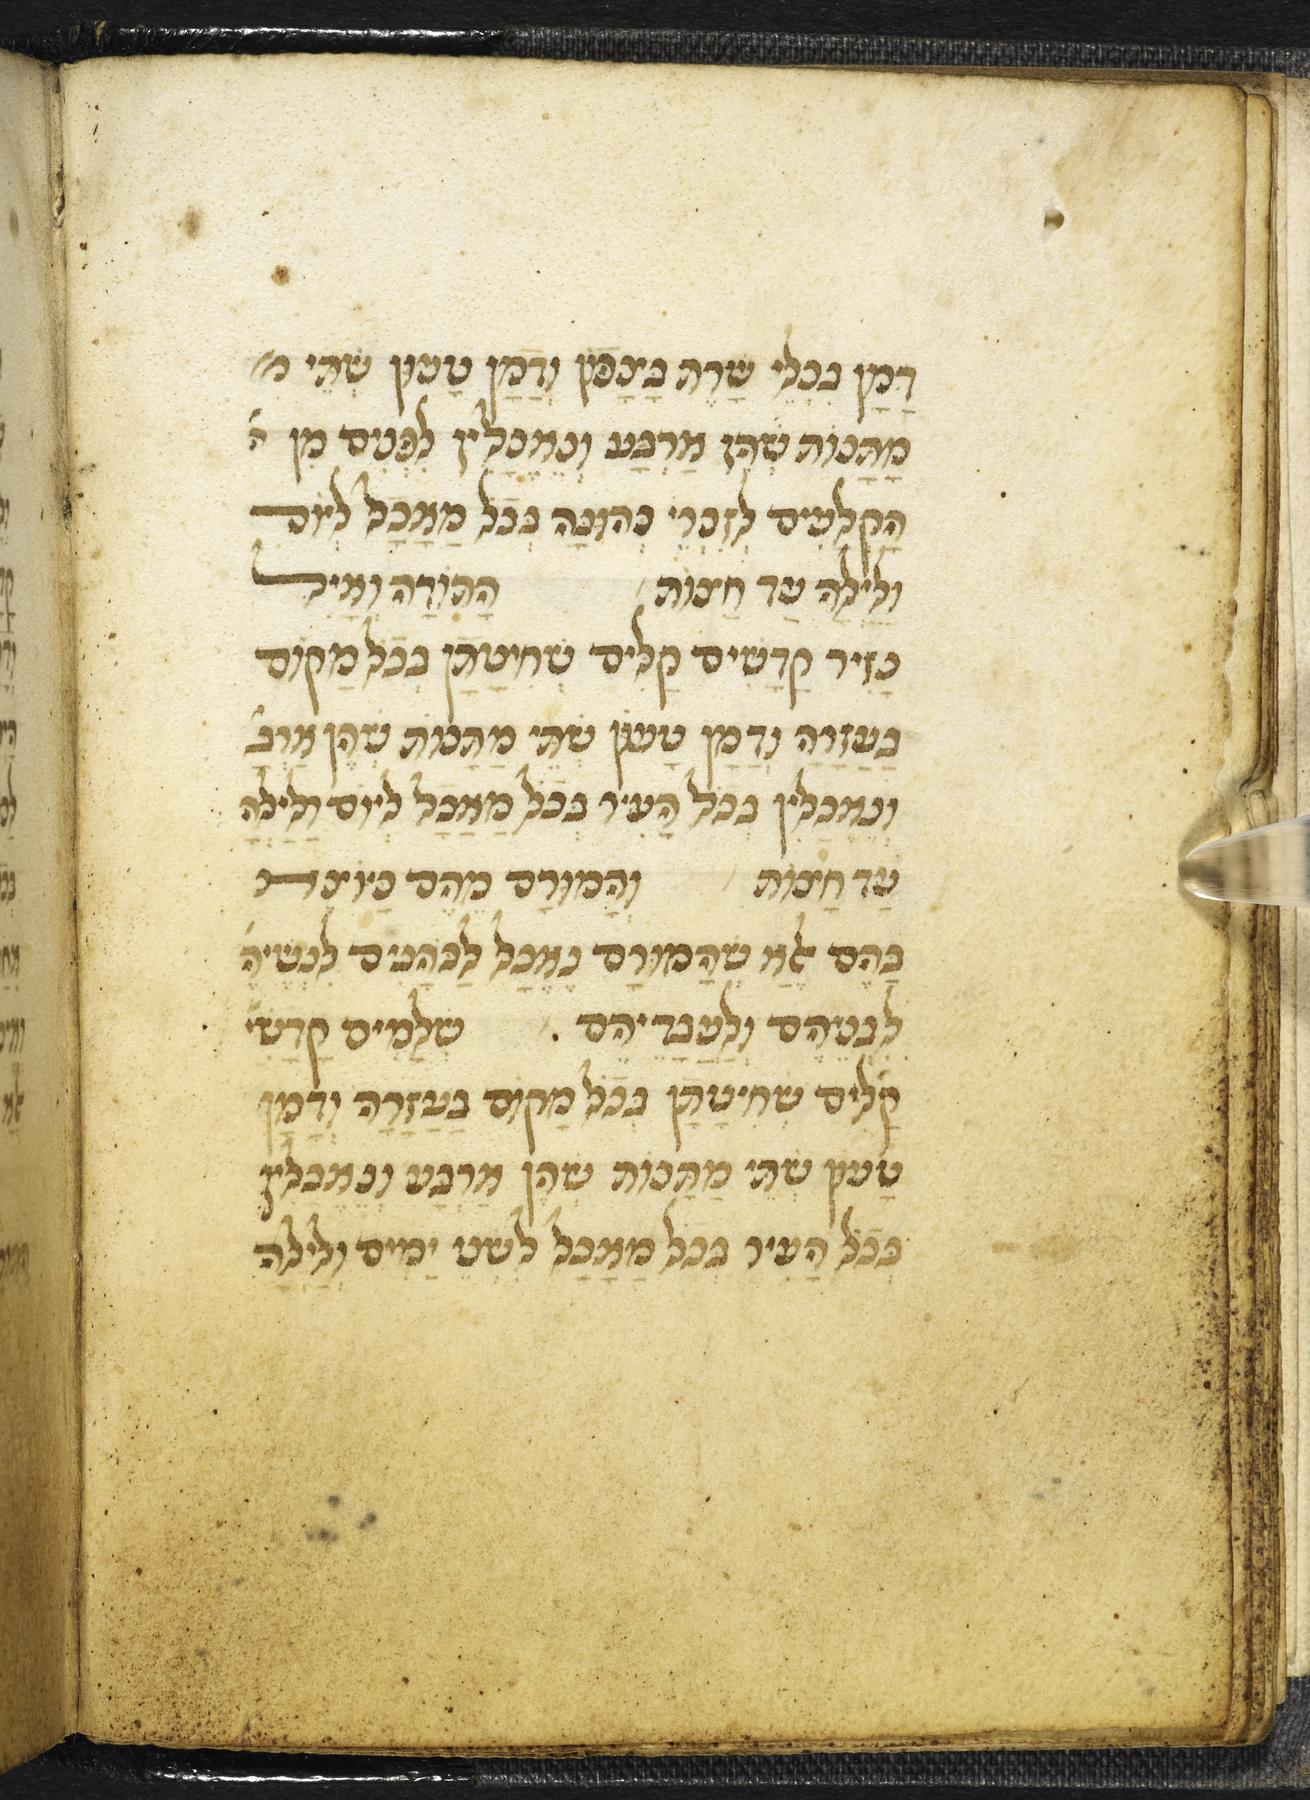 דָמָן בִכְלֵי שָׁרֵת בַּצָּפוֹן וְדָמָן טָעוּן שְׁתֵּי מ
מַתָּנוֹת שֶׁהֵן אַרְבַּע וְנֶאֱכָלִין לִפְנִים מִן ה
הַקְּלָעִים לְזִכְרֵי כְהוּנָה בְּכָל מַאֲכָל לְיוֹם
וְלַיְלָה עַד חֲצוֹת הַתּוֹדָה וְאֵיל
נָזִיר קָדָשִׁים קַלִּים שְׁחִיטָתָן בְּכָל מָקוֹם
בָּעֲזָרָה וְדָמָן טָעוּן שְׁתֵּי מַתָּנוֹת שֶׁהֵן אַרְבַּ
וְנֶאֱכָלִין בְּכָל הָעִיר בְּכָל מַאֲכָל לְיוֹם וָלַיְלָה
עַד חֲצוֹת וְהַמּוּרָם מֵהֶם כַּיּוֹצֵא
בָּהֶם אֶלָּא שֶׁהַמּוּרָם נֶאֱכָל לַכֹּהֲנִים לִנְשֵׁיהֶ
לִבְנֵיהֶם וּלְעַבְדֵיהֶם . שְׁלָמִים קָדָשִׁי
קַלִּים שְׁחִיטָתָן בְּכָל מָקוֹם בָּעֲזָרָה וְדָמָן
טָעוּן שְׁתֵּי מַתָּנוֹת שֶׁהֵן אַרְבַּע וְנֶאֱכָלִין
בְּכָל הָעִיר בְּכָל מַאֲכָל לִשְׁנֵי יָמִים וְלַיְלָה